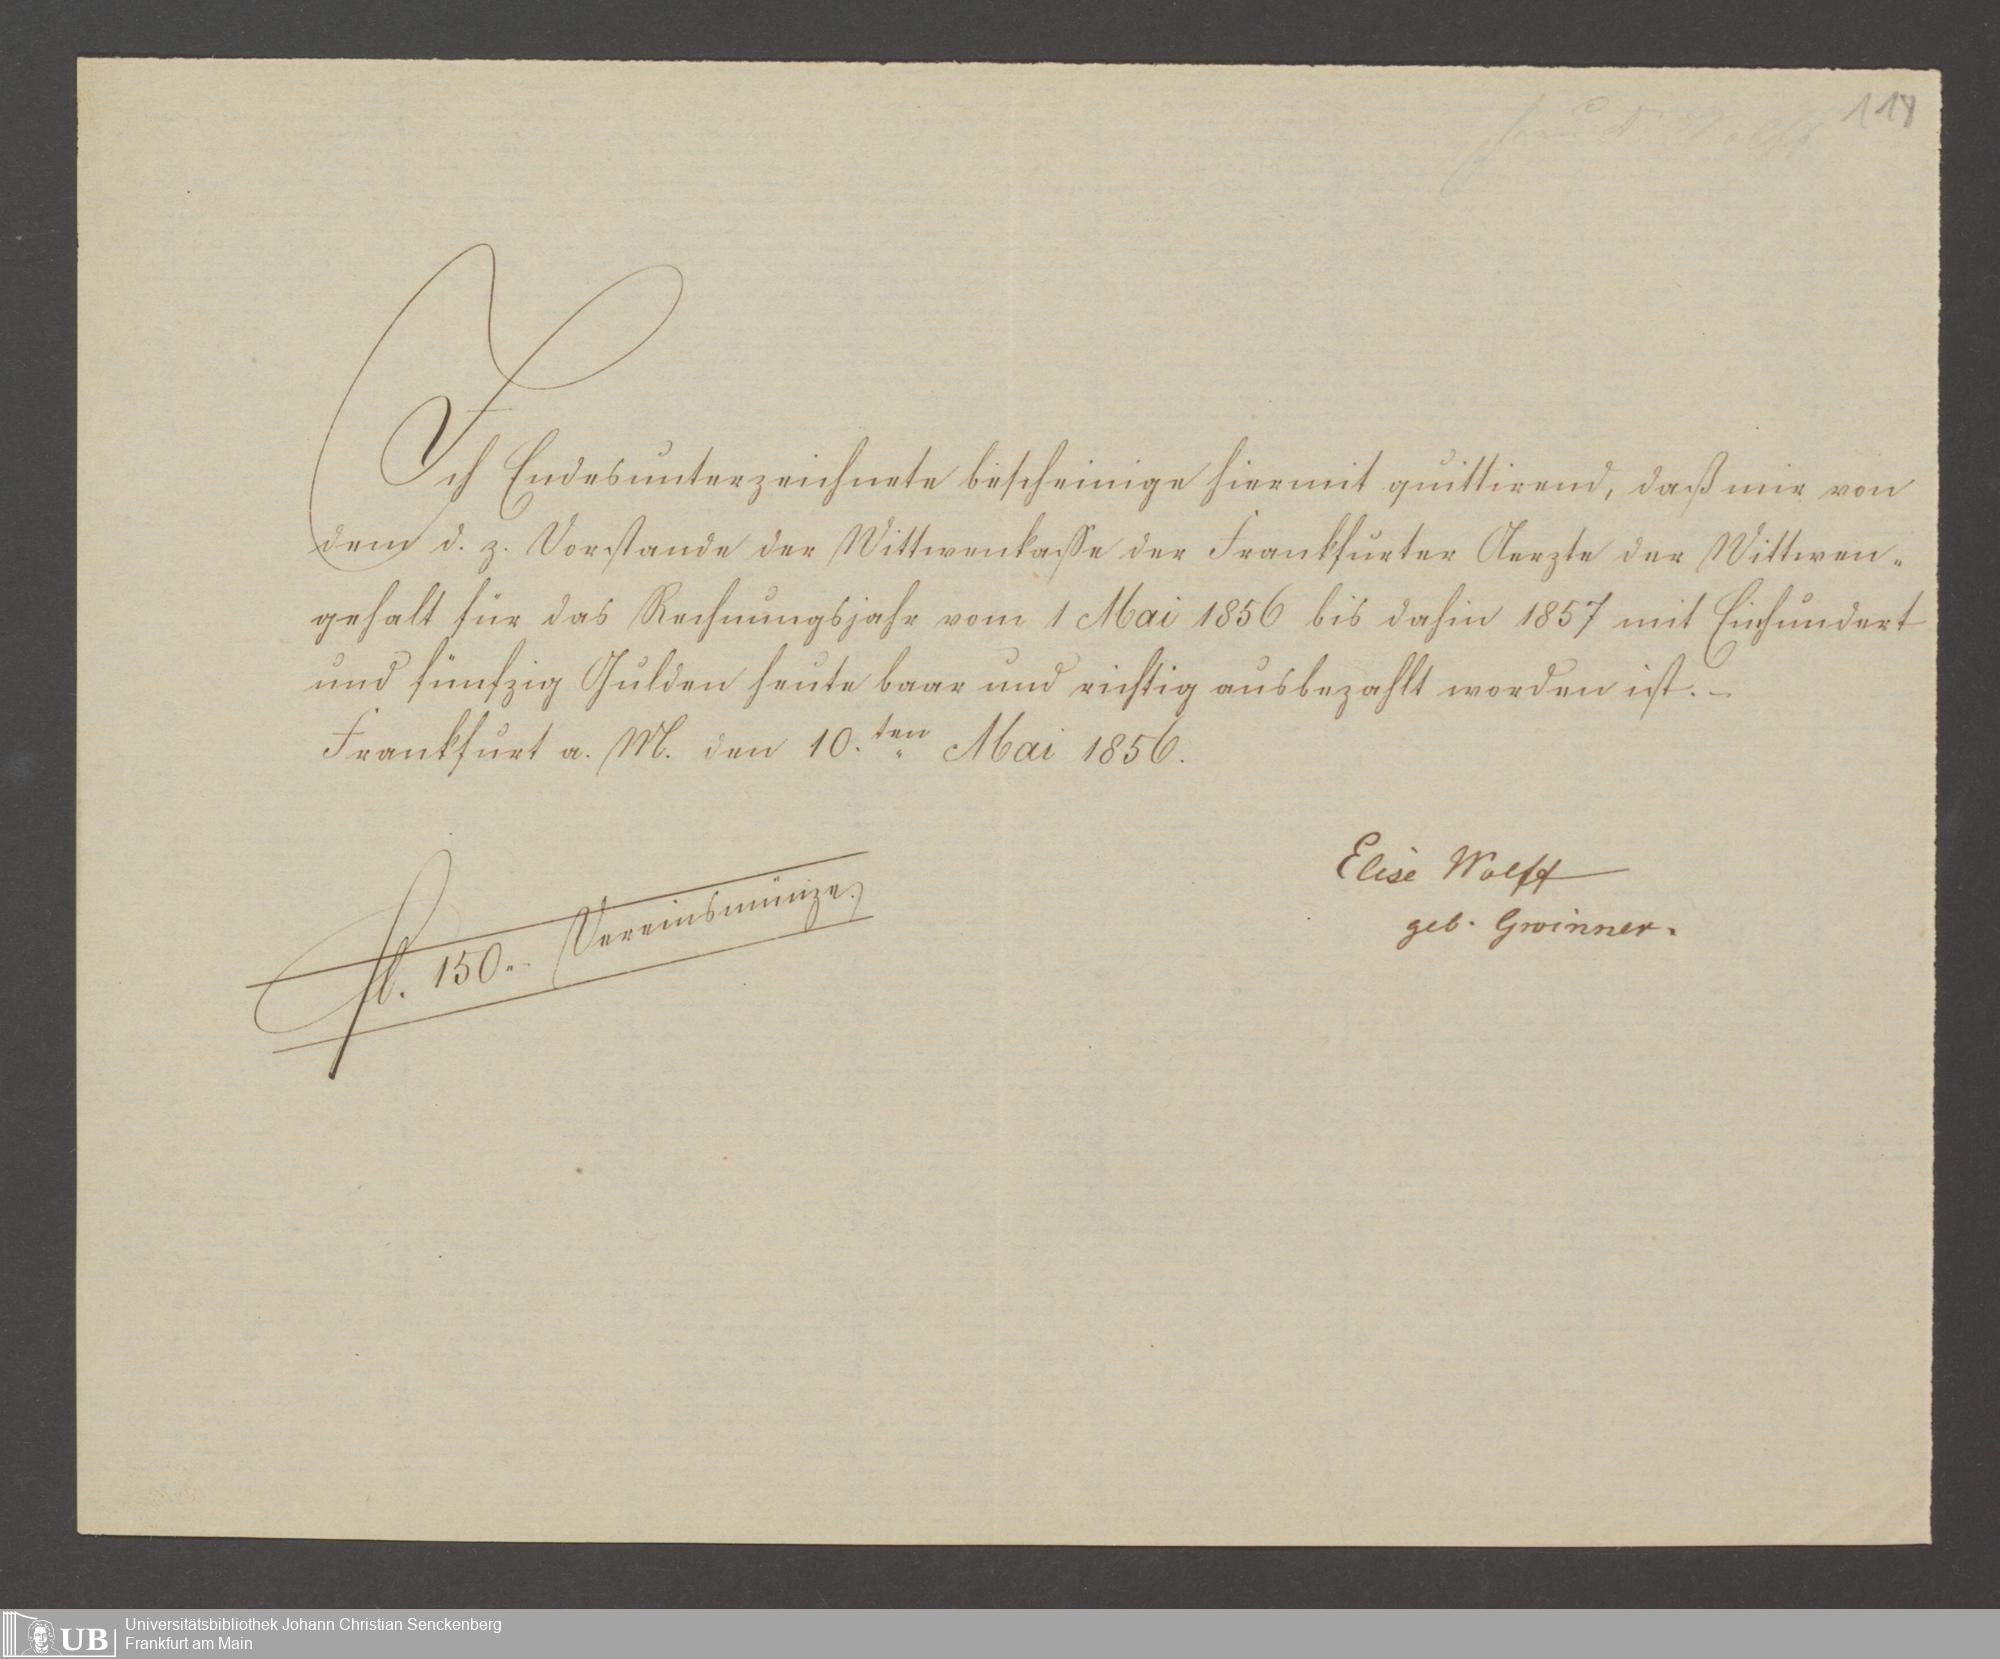 Frau Dr. Wolff
118
Ich Endesunterzeichnete bescheinige hiermit quittirend, daß mir von
dem d. z. Vorstande der Wittwenkasse der Frankfurter Aerzte der Wittwen-
gehalt für das Rechnungsjahr vom 1 Mai 1856 bis dahin 1857 mit Einhundert
und fünfzig Gulden heute baar und richtig ausbezahlt worden ist. –
Frankfurt a. M. den 10.ten Mai 1856.
Elise Wolff
geb. Gwinner.
fl. 150.- (Vereinsmünze.)
UB Universitätsbibliothek Johann Christian Senckenberg
Frankfurt am Main